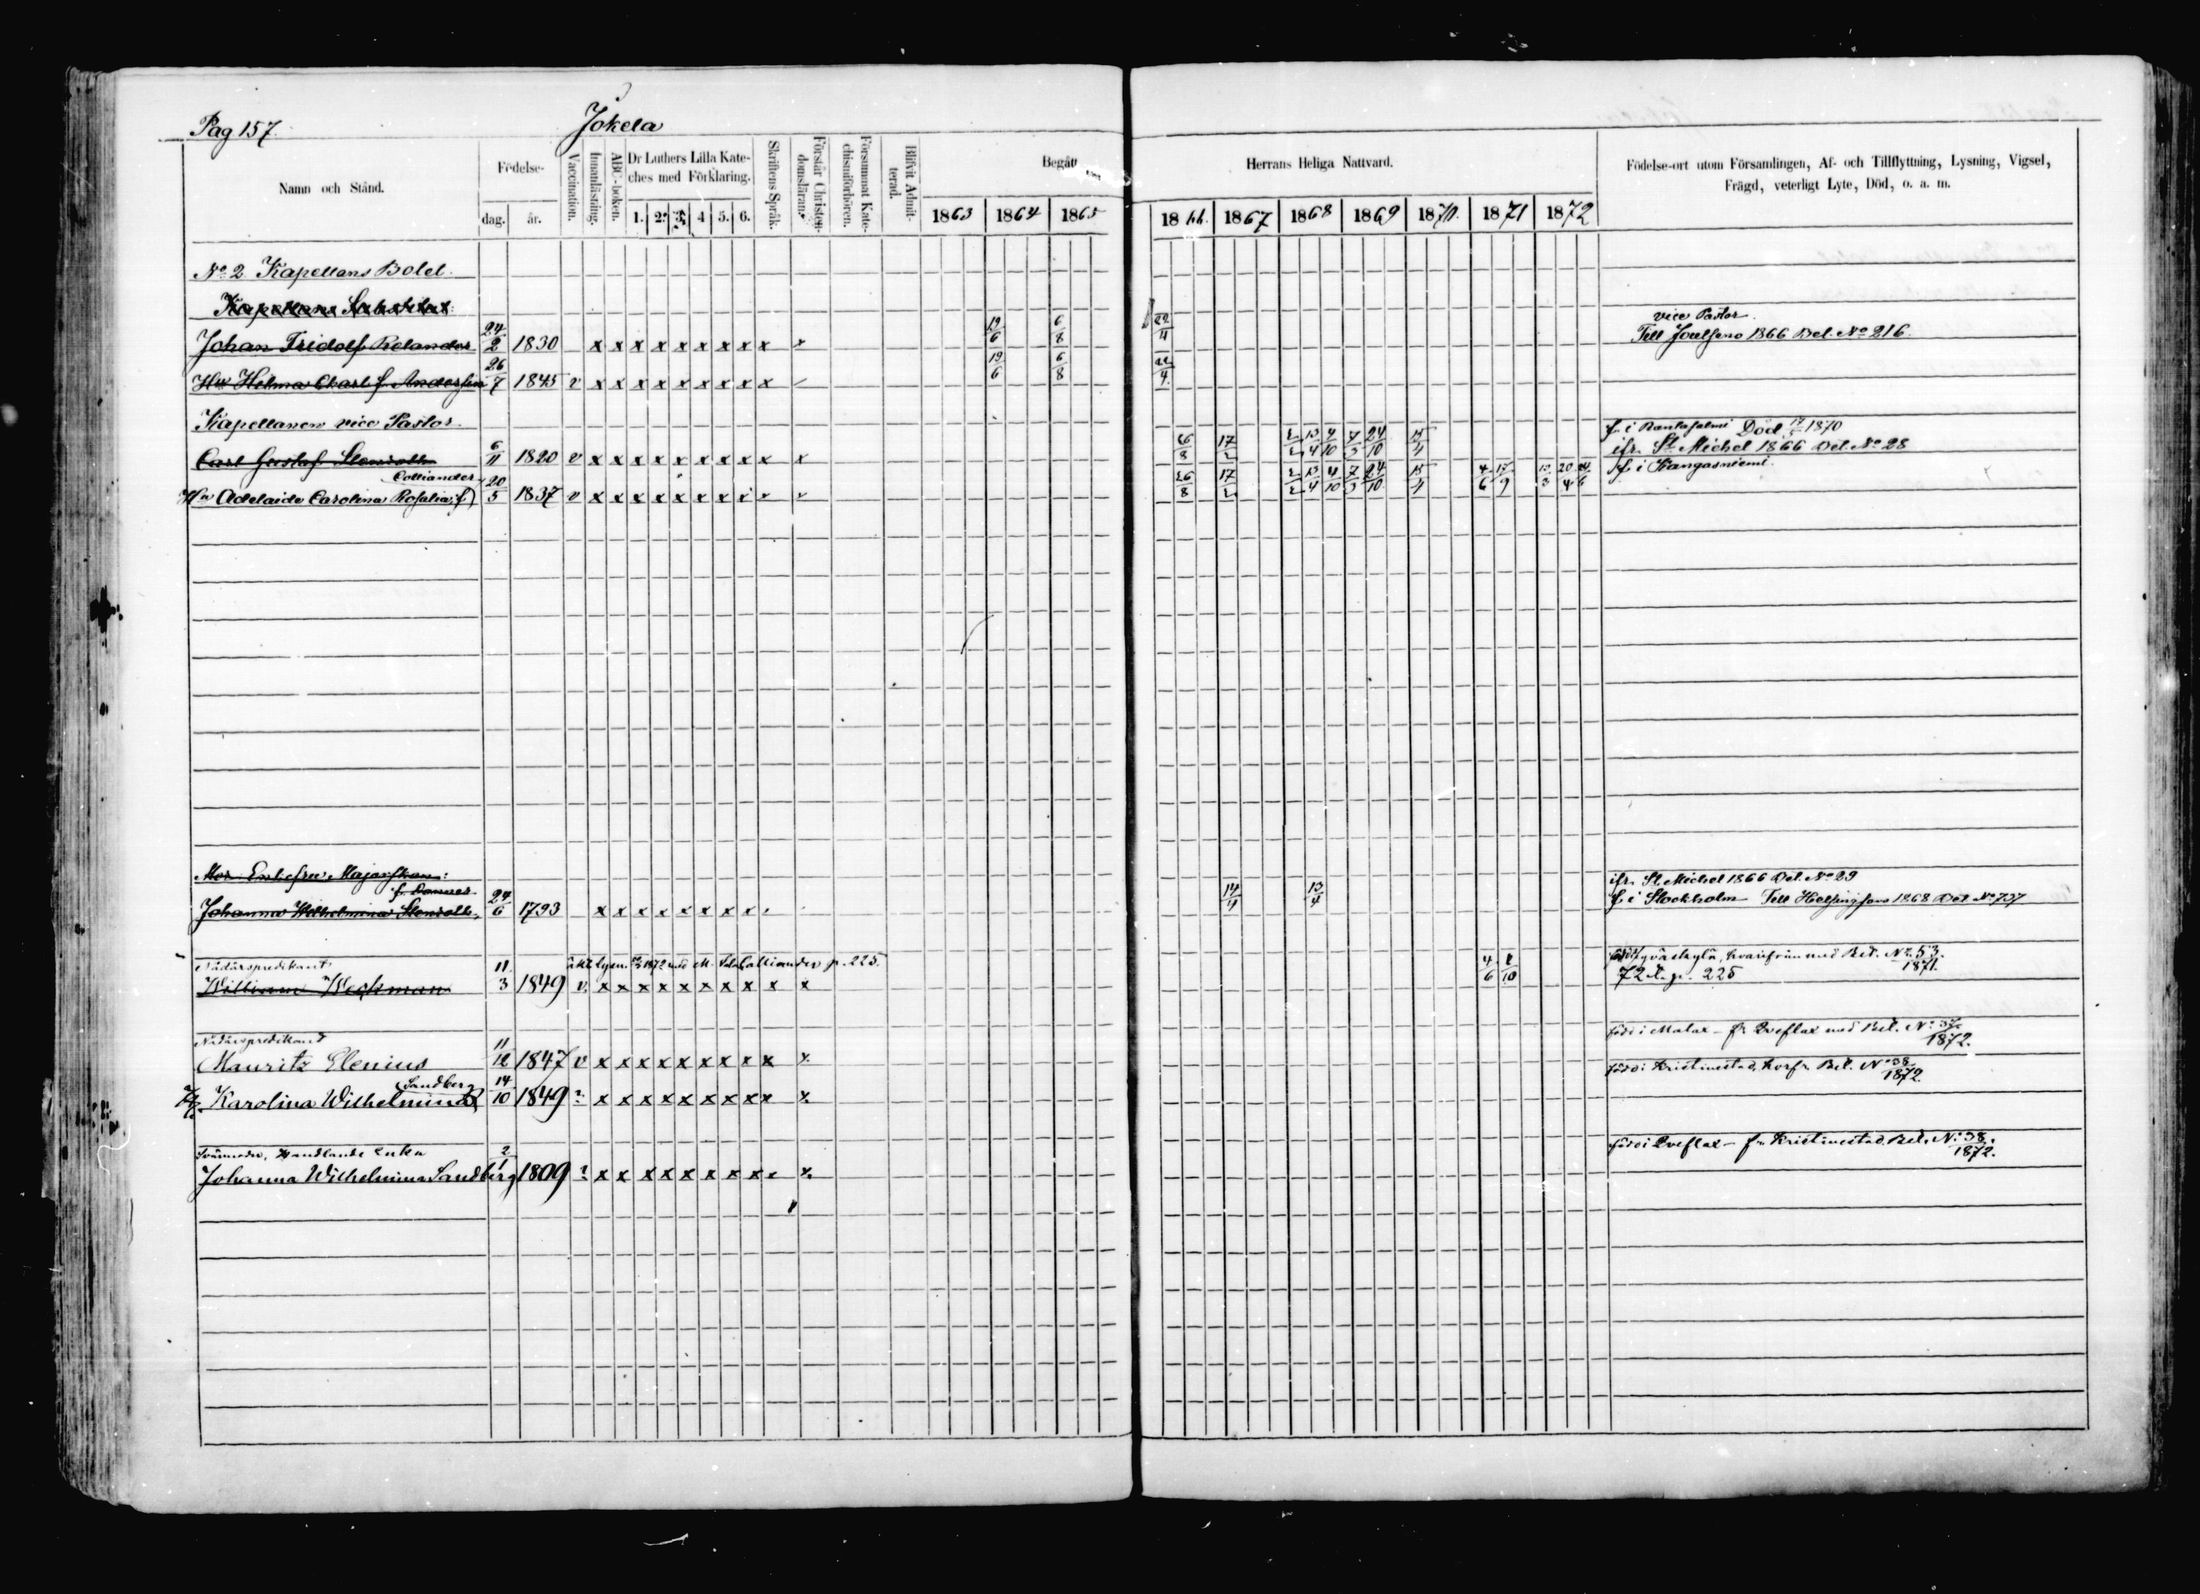 Pag 157. Jokela
Namn och Stånd. Födelse- dag. år. Vaccination. Innanläsning. ABC-boken. Dr Luthers Lilla Kateches med Förklaring. 1. 2. 3. 4 5. 6. Skriftens Språk. Förstår Christendomsläran. Försummat Katechismiförhören. Blifvit Admitterad. Begått Herrans Heliga Nattvard. Födelse-ort utom Församlingen, Af- och Tillflyttning, Lysning, Vigsel, Frägd, veterligt Lyte, Död, o. a. m.
1863 1864 1865 1866. 1867 1868 1869 1870. 1871 1872
No 2 Kapellans Bolet.
Kapellans
vice Pastor.
Johan Fridolf Relander 24/2 1830 x x x x x x x x x x 19/6 6/8 22/4 Till 1866 Bet. No 216.
Hu Helma Charl. f. Andersin 26/7 1845 v x x x x x x x x x 19/6 6/8 22/4
Kapellanen vice Pastor. f. i Rantasalmi Död 1870
Carl Gustaf 6/11 1820 v x x x x x x x x x x 26/8 17/2 13/4 4/10 7/3 24/10 15/4 ifr. St. Michel 1866 Bet. No 28
Colliander
Hu Adelaide Carolina Rosalia, f) 20/5 1837 v x x x x x x x 26/8 17/2 13/4 4/10 7/3 24/10 15/4 4/6 17/9 20/4 24/6 f. i Kangasniemi.
Mor Enkefru Majorskan: ifr. St. Michel 1866 Bet. No 29
Johanna Wilhelmina 24/6 1793 x x x x x x x x 14/4 13/4 f. i Stockholm Till Helsingfors 1868 Bet No 737
Nådårspredikant 1872 med Colliander p. 225. Jyväskylä, hvarifrån med Bet. No 53. 1871.
William Weckman 11./3 1849 v. x x x x x x x x x x 4/6 8/10 72 p. 225
Nådårspredikand född i Malax – fr. Qveflax med Bet. No 1872.
Mauritz Elenius 11/12 1847 v x x x x x x x x x x.
Sandberg född i Kristinestad, Bet. No 38 1872.
Karolina Wilhelmina 14/10 1849 ? x x x x x x x x x x.
Svärmoder, Handlande Enka född i Qveflax – fr. Kristinestad, Bet. No 38. 1872.
Johanna Wilhelmina Sandberg 2/1 1809 ? x x x x x x x x x.